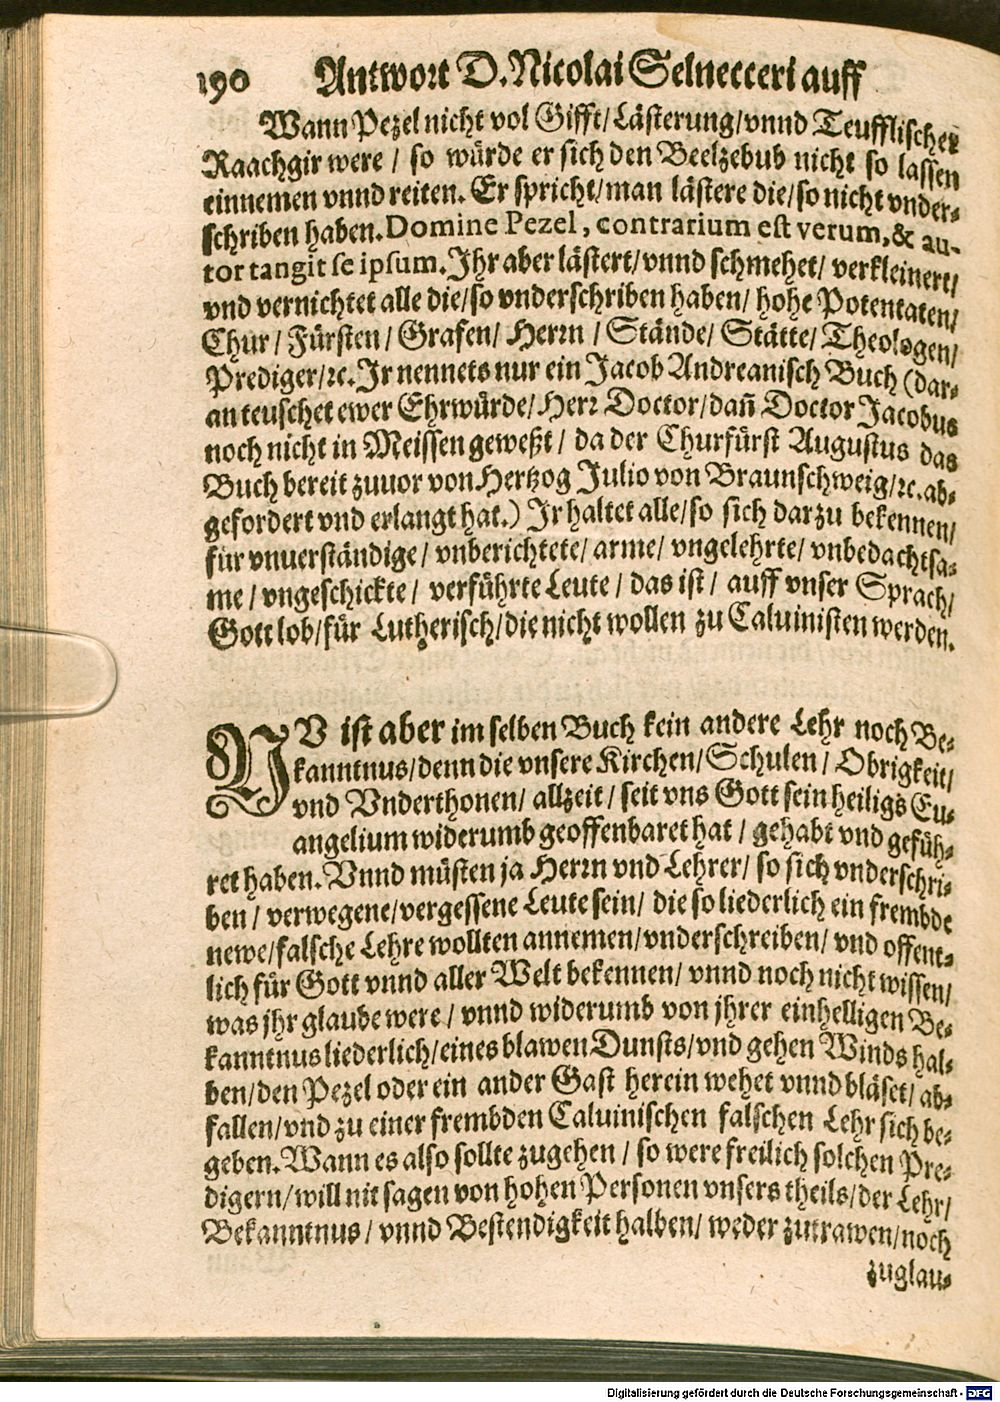 190 Antwort D. Nicolai Selnecceri auff
Wann Pezel nicht vol Gifft/ Lästerung/ vnnd Teufflischer
Raachgir were / so würde er sich den Beelzebub nicht so lassen
einnemen vnnd reiten. Er spricht/ man lästere die/ so nicht vnder-
schriben haben. Domine Pezel, contrarium est verum, & au-
tor tangit se ipsum. Ihr aber lästert/ vnnd schmehet/ verkleinert/
vnd vernichtet alle die/ so vnderschriben haben/ hohe Potentaten/
Chur / Fürsten / Grafen/ Herrn / Stände/ Stätte/ Theologen/
Prediger/ ꝛc. Ir nennets nur ein Jacob Andreanisch Buch (dar-
an teuschet ewer Ehrwürde/ Herr Doctor/ dañ Doctor Jacobus
noch nicht in Meissen geweßt / da der Churfürst Augustus das
Buch bereit zuuor von Hertzog Julio von Braunschweig/ ꝛc. ab-
gefordert vnd erlangt hat.) Ir haltet alle/ so sich darzu bekennen/
für vnuerständige / vnberichtete/ arme/ vngelehrte/ vnbedachtsa-
me / vngeschickte / verführte Leute / das ist / auff vnser Sprach/
Gott lob/ für Lutherisch/ die nicht wollen zu Caluinisten werden.
NV ist aber im selben Buch kein andere Lehr noch Be-
kanntnus/ denn die vnsere Kirchen/ Schulen / Obrigkeit/
vnd Vnderthonen/ allzeit / seit vns Gott sein heiligs Eu-
angelium widerumb geoffenbaret hat / gehabt vnd gefüh-
ret haben. Vnnd müsten ja Herrn vnd Lehrer/ so sich vnderschri-
ben / verwegene/ vergessene Leute sein/ die so liederlich ein frembde
newe/ falsche Lehre wollten annemen/ vnderschreiben/ vnd offent-
lich für Gott vnnd aller Welt bekennen/ vnnd noch nicht wissen/
was jhr glaube were / vnnd widerumb von jhrer einhelligen Be-
kanntnus liederlich/ eines blawen Dunsts/ vnd gehen Winds hal-
ben/ den Pezel oder ein ander Gast herein wehet vnnd bläset/ ab-
fallen/ vnd zu einer frembden Caluinischen falschen Lehr sich be-
geben. Wann es also sollte zugehen / so were freilich solchen Pre-
digern/ will nit sagen von hohen Personen vnsers theils/ der Lehr/
Bekanntnus / vnnd Bestendigkeit halben/ weder zutrawen/ noch
zuglau-
Digitalisierung gefördert durch die Deutsche Forschungsgemeinschaft - DFG